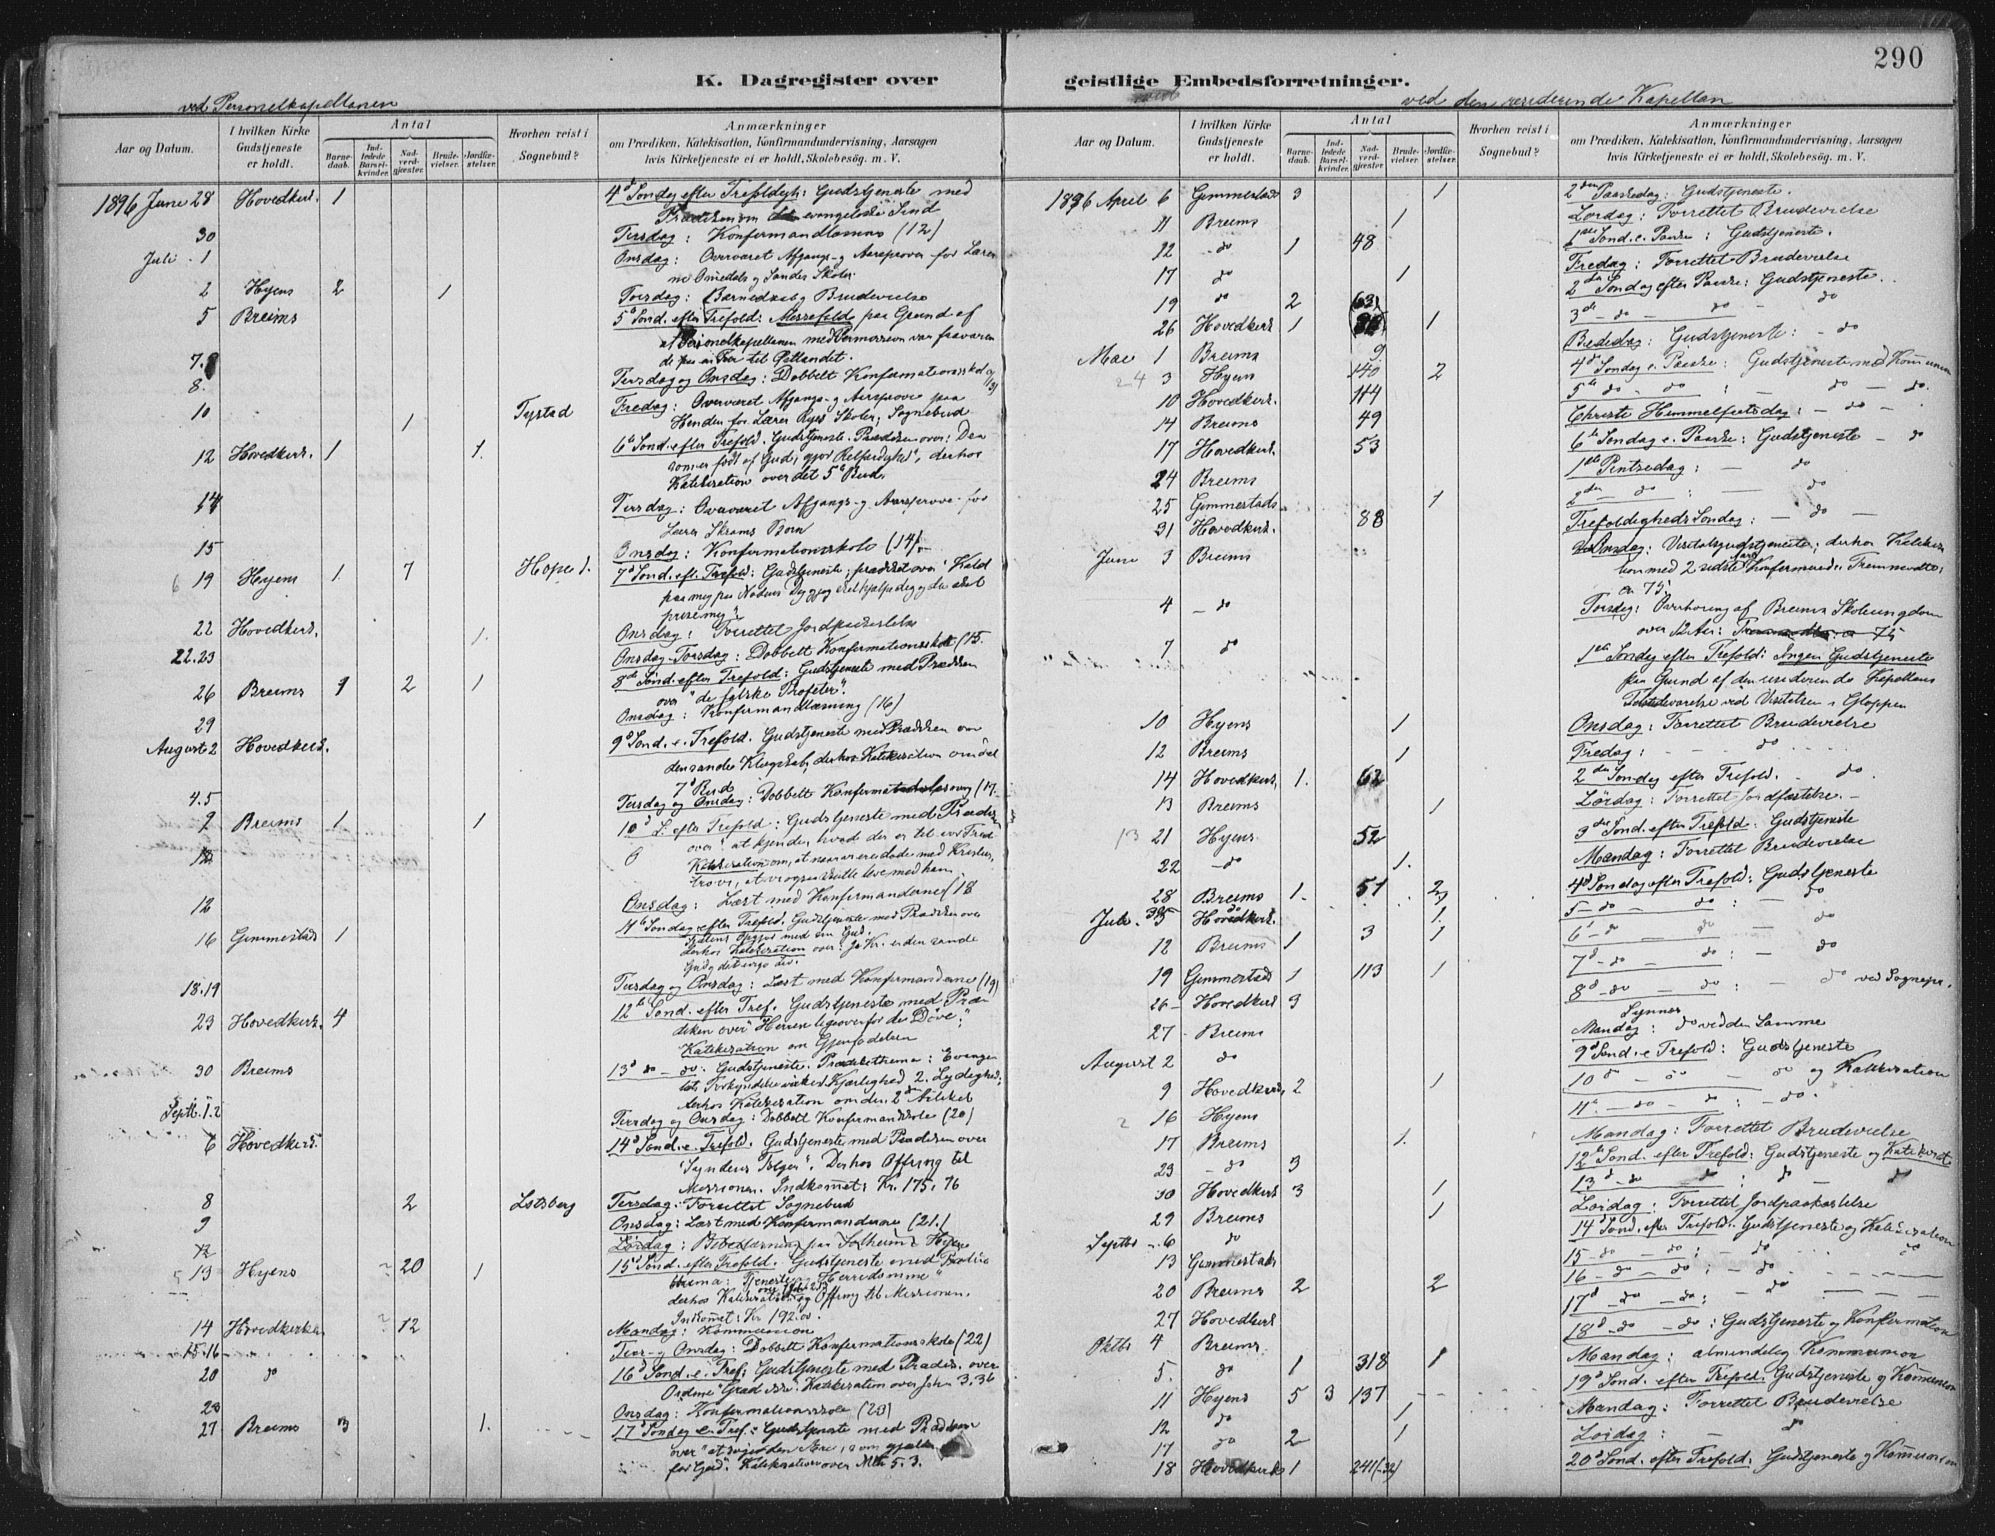 290
K. Dagregister over
geistlige Embedsforretninger.
ved Personelkapellanen
ved den residerende Kapellan
Aar og Datum.
I hvilken Kirke
Gudstjeneste
er holdt.
Antal
Barne-
daab.
Ind-
ledede
Barsel-
kvinder.
Nad-
verd-
gjæster.
Brude-
vielser.
Jordfæ-
stelser.
Hvorhen reist i
Sognebud?
Anmærkninger
om Prædiken, Katekisation, Konfirmandundervisning, Aarsagen
hvis Kirketjeneste ei er holdt, Skolebesög. m. V.
1896 Juni 28 Hovedkirk. 1 4d Søndag efter Trefoldigh: Gudstjeneste med
Prædiken om evangeliske Sind
30 Tirsdag: Konfirmandlæsning (12)
Juli 1 Onsdag: Overværet Afgangs- og Aarsprøver for Lærer
2 Hyens 2 1 Torsdag: Barnedaab og Brudevielse
5 Breims 5d Sønd. efter Trefold: Messefald paa Grund af
at Personelkapellanen med Permission var fraværen
7.
8 Tirsdag og Onsdag: Dobbelt Konfirmationsskole
10 1 Tystad Fredag: Overværet Afgangs- og Aarsprøve paa
12 Hovedkirk. 1 1. 6te Sønd. efter Trefold. Gudstjeneste. Prædiken over: Den
som er født af Gud, gjør Retferdighet, derhos
Katekisation over det 5te Bud.
14 Tirsdag: Overværet Afgangs- og Aarsprøve for
15 Onsdag: Konfirmationsskole (14).
19 Hyens 1. 7 Hope 1. 7d Sønd. eft. Trefold: Gudstjeneste; prædiket over: Kald
paa mig paa Nødens Dag, jeg vil hjælpe dig og du skal
prise mig"
22 Hovedkirk. 1. Onsdag: Forrettet Jordpaakastelse
22.23 Onsdag-Torsdag: Dobbelt Konfirmationsskole (15.
26 Breims 1 2 1 8de Sønd. efter Trefold: Gudstjeneste med Prædiken
over "de falske Profeter".
29 Onsdag: Konfirmandlæsning (16)
August 2 Hovedkirk. 9d Sønd. e. Trefold. Gudstjeneste med Prædiken om
den sande Klogskab; derhos Katekisation om det
7d Bud
4.5 Tirsdag og Onsdag: Dobbelt Konfirmandlæsning (17.
9 Breims 1 1 10d S. efter Trefold: Gudstjeneste med Prædiken
over "at kjende, hvad der er til vor Fred
Katekisation om, at naar vi ere døde med Kristus,
tro vi, at vi ogsaa skulle leve med ham.
12 Onsdag: Læst med Konfirmanderne (18
16 Gimmestad 1 11te Søndag efter Trefold. Gudstjeneste med Prædiken over
derhos Katekisation over: Js. Kr. er den sande
Gud og det evige Liv.
18.19 Tirsdag og Onsdag: Læst med Konfirmanderne (19)
23 Hovedkirk. 4 12te Sønd. efter Tref. Gudstjeneste med Præ
diken over "Herren ligeoverfor den Døve";
Katekisation om Gjenfødelsen
30 Breims 13d do - do. Gudstjeneste. Prædikethema: Evange
liets Forkyndelse virker Kjærlighed 2. Lydighed;
derhos Katekisation om den 2den Artikel
Septb. 1.2 Tirsdag og Onsdag: Dobbelt Konfirmandskole (20)
6 Hovedkirk. 14d Sønd. e. Trefold. Gudstjeneste med Prædiken over
"Syndens Følger". Derhos Offring til
Missionen. Indkommet: Kr. 175.76
8 2 Lotsberg Tirsdag: Forrettet Sognebud
9 Onsdag: Læst med Konfirmanderne (21.)
12 Lørdag: Bibellæsning paa Solheims Hyen
13 Hyens 20 1 15d Sønd. efter Trefold. Gudstjeneste med Prædike
thema: Tjenesten Herredømme"
derhos Katekisation og Offring til Missionen.
Indkommet: Kr 192.00.
14 Hovedkirken 12 Mandag: Kommunion
15.16 Tirs- og Onsdag: Dobbelt Konfirmationsskole (22)
20 do 16d Sønd. e. Tref: Gudstjeneste med Prædik. over
Ordene "Græd ikke". Katekisation over Joh. 3.36
23 Onsdag: Konfirmationsskole (23)
27 Breims 3 1. 17d Søndag e. Tref.: Gudstjeneste med Prædiken
over "at søge den Ære, som gjælder
for Gud". Katekisation over Mt. 5.3.
Aar og Datum.
I hvilken Kirke
Gudstjeneste
er holdt.
Antal
Barne-
daab.
Ind-
ledede
Barsel-
kvinder.
Nad-
verd-
gjæster.
Brude-
vielser.
Jordfæ-
stelser.
Hvorhen reist i
Sognebud?
Anmærkninger
om Prædiken, Katekisation, Konfirmandundervisning, Aarsagen
hvis Kirketjeneste ei er holdt, Skolebesög. m. V.
1896 April 6 Gimmestads 3 1 2den Paaskedag: Gudstjeneste.
11 Breims 1 Lørdag: Forrettet Brudevielse
12 do 1 48 1ste Sønd. e. Paaske: Gudstjeneste.
17 do 1 Fredag: Forrettet Brudevielse
19 do 2 63 2den Søndag efter Paaske: Gudstjeneste
26 Hovedkirk 1 1 3die - do - do - do
Mai 1 Breims 9 Bededag: Gudstjeneste: - do
3 Hyens 140 2 4d Søndag e. Paaske: Gudstjeneste med Kommunion
10 Hovedkirk. 144 5te do - do : do - do.
14 Breims 49 Christi Himmelfartsdag: - do -
17 Hovedkirk. 53 6te Søndag e. Paaske: Gudstjeneste - do
24 Breims 1ste Pintsedag: - do
25 Gimmestads 1 2den - do - : - do
31 Hovedkirk. 88 Trefoldigheds Søndag: - do -
Juni 3 Breims Onsdag: Visitatsgudstjeneste; derhos Katekisa
tion med 2 sidste Aars Konfirmerede. Fremmødte:
ca 75.
4 - do Torsdag: Overhøring af Breims Skoleungdom
7 do 1ste Søndag efter Trefold: Ingen Gudstjeneste
paa Grund af den residerende Kapellans
Tilstedeværelse ved Visitatsen i Gloppen
10 Hyens 1 Onsdag: Forrettet Brudevielse
12 Breims 1 Fredag: - do
14 Hovedkirk. 1. 62 2den Søndag efter Trefold. - do.
13 Breims 1 Lørdag: Forrettet Jordfæstelse.
21 Hyens 52 3die Sønd. efter Trefold. Gudstjeneste
22 - do 1. Mandag: Forrettet Brudevielse
28 Breims 1. 51 2 4d Søndag efter Trefold: Gudstjeneste
Juli 5 Hovedkirk. 1. 5 - do - do : - do
12 Breims 1 3 1 6te - do - do - do
19 Gimmestad 1 113 1 7d - do - do : - do
26 - Hovedkirk 3 8d - do - do : - do ved Sognepr.
Synnes
27 - Breims Mandag: do ved den Samme
August 2 do 9d Sønd. e. Trefold: Gudstjeneste
9 Hovedkirk 2 1 10d - do - do og Katekisation
16 Hyens 11te - do - do : - do.
17 Breims 1. Mandag: Forrettet Brudevielse
23 - do 3 12te Sønd. efter Trefold: Gudstjeneste og Katekisat
30 Hovedkirk 3 1 13d - do - do : do - do
29 Breims 1 Lørdag: Forrettet Jordpaakastelse
Septbr. 6 do 14d Sønd. efter Trefold. Gudstjeneste og Katekisation
13 Gimmestads 15 - do - do : - do do
20 Breims 2 2 16 - do - do : - do
27 Hovedkirk 17d - do - do : - do
Oktbr 4 Breims 18d - do - do : Gudstjeneste og Konfirmation
5. do 1 318 1 Mandag: almindelig Kommunion
11 Hyens 5 3 137 19d Sønd. efter Trefold. Gudstjeneste og Kommunion
12 do 1 Mandag: Forrettet Brudevielse
17 do 2 1 Lørdag: - do
18 Hovedkirk 1 241 (-32) 20d Sønd. efter Trefold: Gudstjeneste og Kommunion